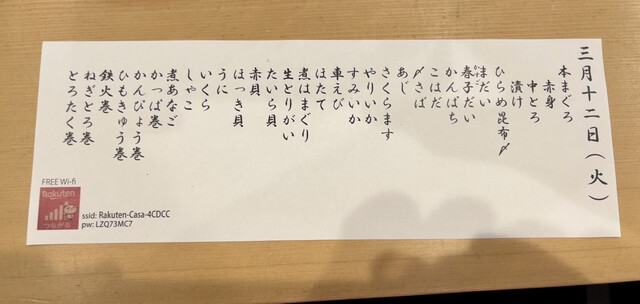 三月十二日(火)
本まぐろ
赤身
中とろ
漬け
ひらめ昆布〆
まだい
春子だい
かすご
かんぱち
こはだ
〆さば
あじ
さくらます
やりいか
すみいか
車えび
ほたて
煮はまぐり
生とりがい
たいら貝
赤貝
ほっき貝
うに
いくら
しゃこ
煮あなご
かっぱ巻
かんぴょう巻
ひもきゅう巻
鉄火巻
ねぎとろ巻
とろたく巻
FREE Wi-fi
Rakuten
つながる
ssid: Rakuten-Casa-4CDCC
pw: LZQ73MC7